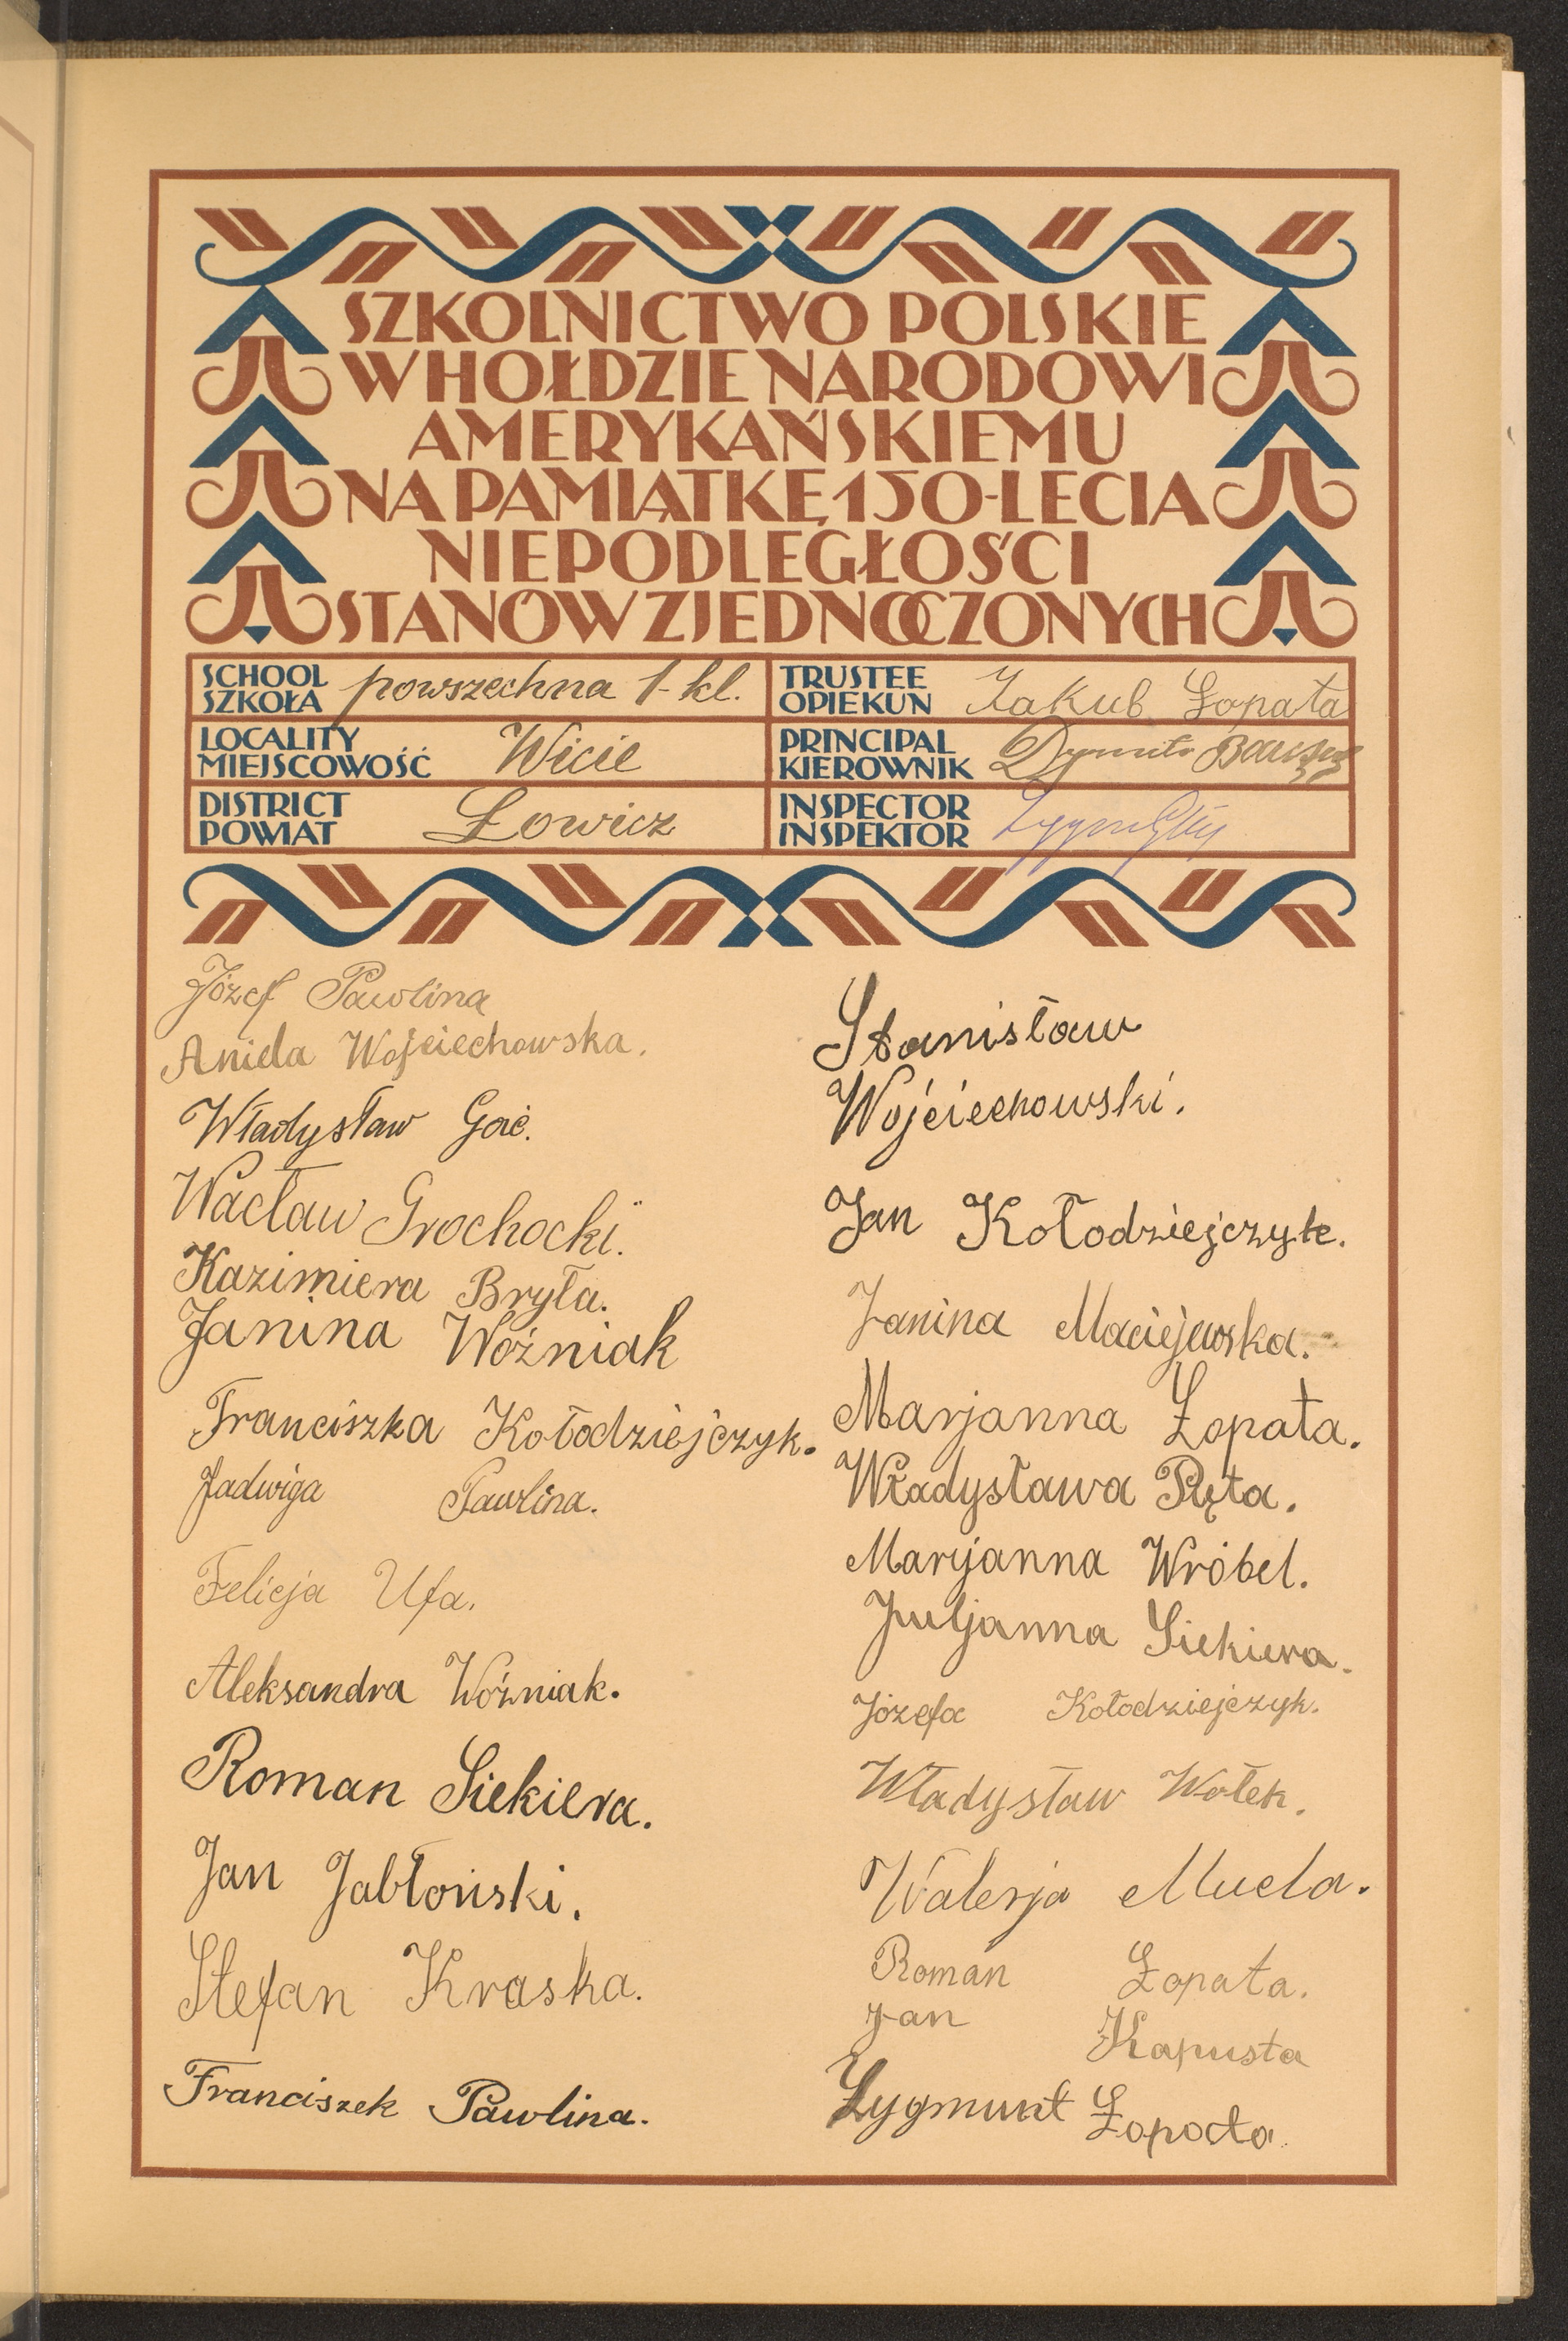 SZKOLNICTWO POLSKIE
W HOŁDZIE NARODOWI
AMERYKAŃSKIEMU
NA PAMIĄTKĘ 150-LECIA
NIEPODLEGŁOŚCI
STANÓW ZJEDNOCZONYCH
SCHOOL
SZKOŁA powszechna 1-kl.
TRUSTEE
OPIEKUN Jakub Łopata
LOCALITY
MIEJSCOWOŚĆ Wicie
PRINCIPAL
KIEROWNIK
DISTRICT
POWIAT Łowicz
INSPECTOR
INSPEKTOR
Józef Pawlina
Aniela Wojciechowska.
Władysław Gać.
Wacław Grochocki.
Kazimiera Bryła.
Janina Woźniak
Franciszka Kołodziejczyk.
Jadwiga Pawlina.
Felicja Ufa.
Aleksandra Woźniak.
Roman Siekiera.
Jan Jabłoński.
Stefan Kraska.
Franciszek Pawlina.
Stanisław
Wojciechowski.
Jan Kołodziejczyk.
Janina Maciejewska.
Marjanna Łopata.
Władysława Pięta.
Maryjanna Wróbel.
Juljanna Siekiera.
Józefa Kołodziejczyk.
Władysław Wołek.
Walerja Mucla.
Roman Łopata.
Jan Kapusta
Zygmunt Łopata.